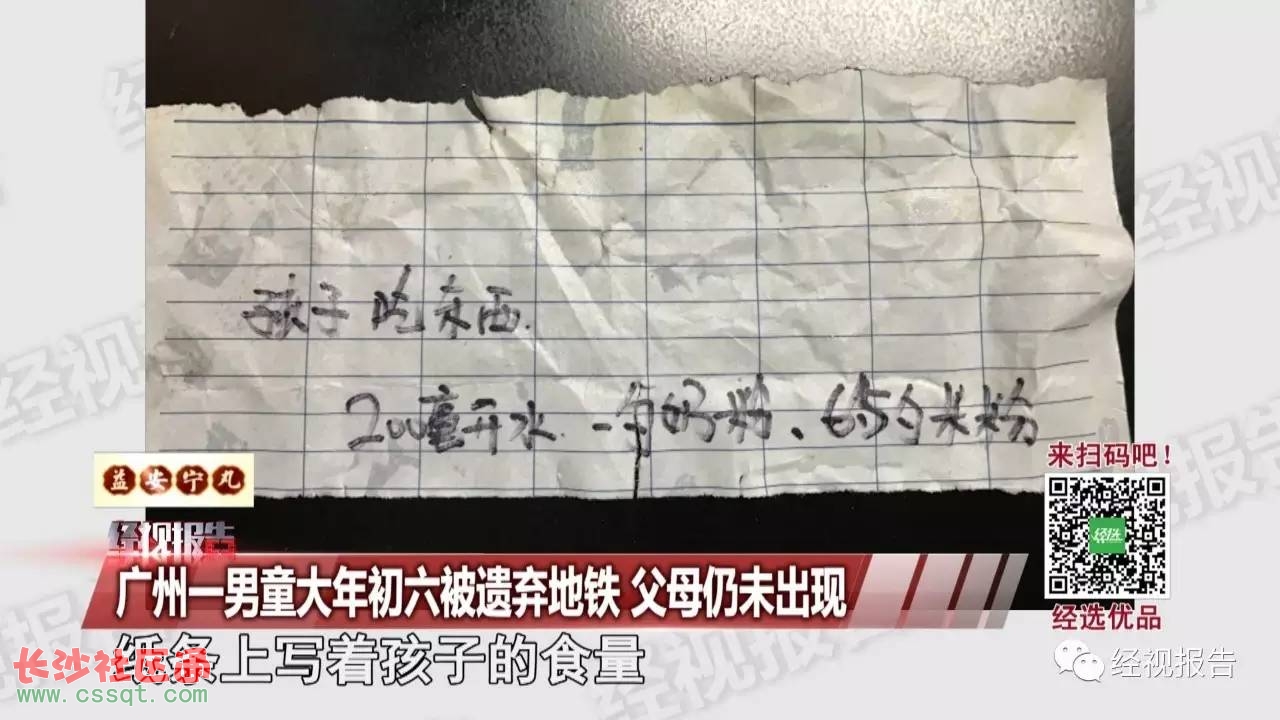 孩子吃东西.
200毫开水.一勺奶粉、6.5勺米粉
来扫码吧！
益安宁丸
经视报告
经选
广州一男童大年初六被遗弃地铁 父母仍未出现
经选优品
纸条上写着孩子的食量
长沙社区通
www.cssqt.com
经视报告